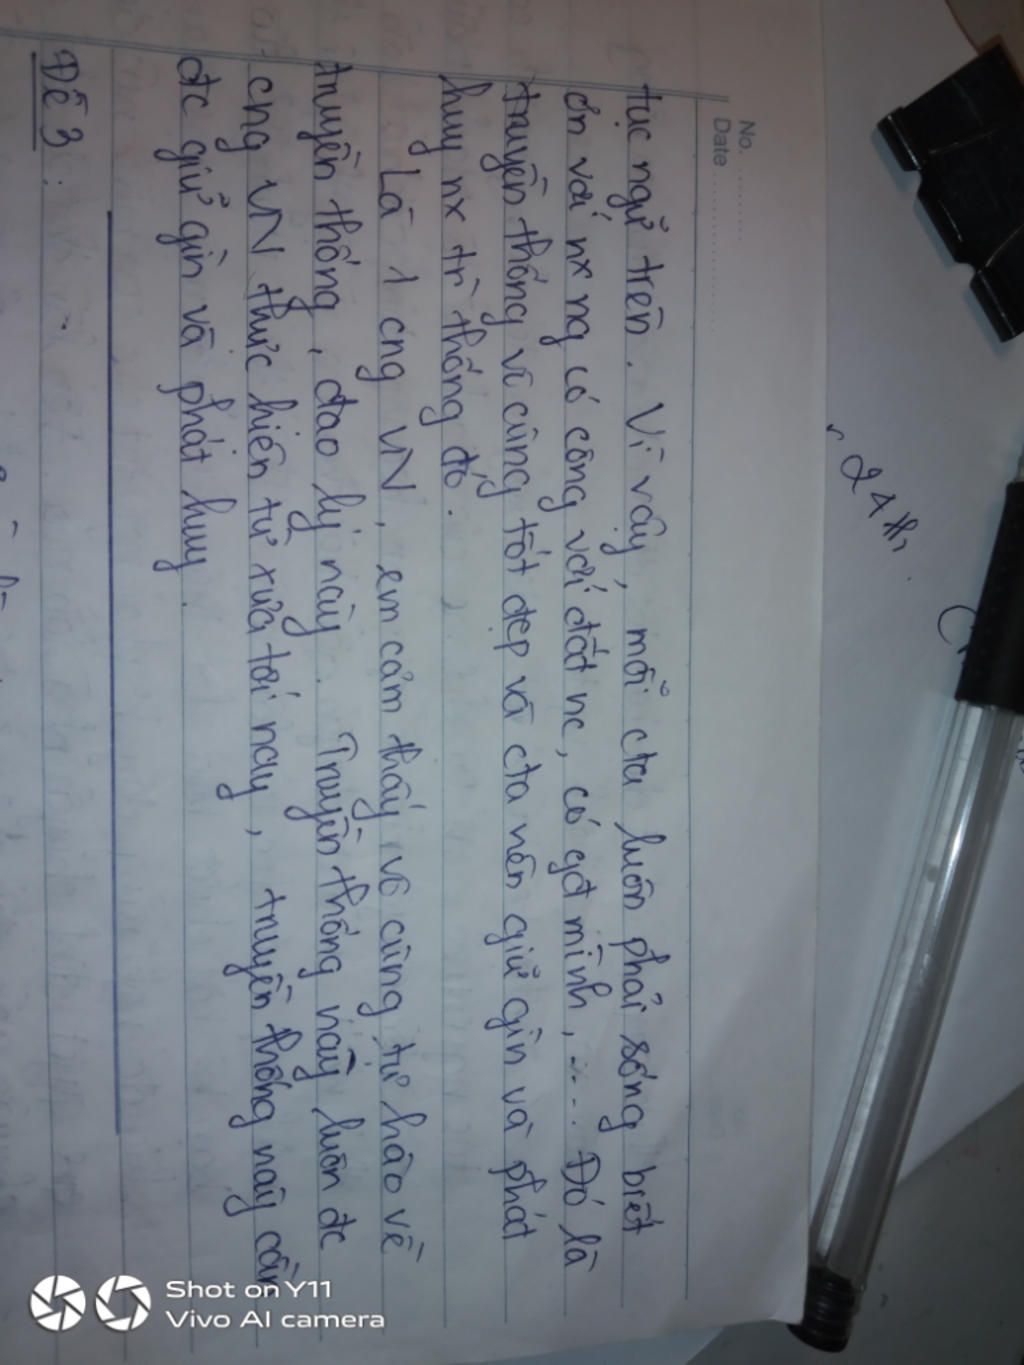 No. ..........
Date ....................
tục ngữ trên. Vì vậy, mỗi cta luôn phải sống biết
ơn với nx ng có công với đất nc, có gđ mình, .... Đó là
truyền thống vô cùng tốt đẹp và cta nên giữ gìn và phát
huy nx tr` thống đó.
Là 1 cng VN, em cảm thấy vô cùng tự hào về
truyền thống, đạo lý này. Truyền thống này luôn đc
cng VN thực hiện từ xưa tới nay, truyền thống này cần
đc giữ gìn và phát huy.
Đề 3:
Shot on Y11
Vivo AI camera